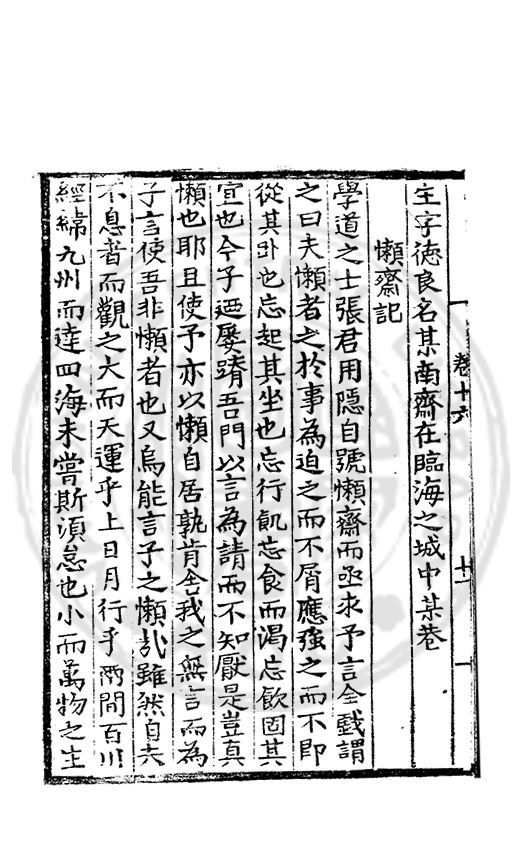 卷十六
十一
生字德良名某南齋在臨海之城中某巷
懶齋記
學道之士張君用隱自號懶齋而亟求予言全戲謂
之曰夫懶者之於事為迫之而不屑應強之而不即
從其卧也忘起其坐也忘行飢忘食而渴忘飲固其
宜也今子迺屡踖吾門以言為請而不知厭是豈真
懶也耶且使予亦以懶自居孰肯舍我之無言而為
子言使吾非懶者也又烏能言子之懶㢤雖然自夫
不息者而觀之大而天運乎上日月行乎兩間百川
經緯九州而達四海未嘗斯須怠也小而萬物之生